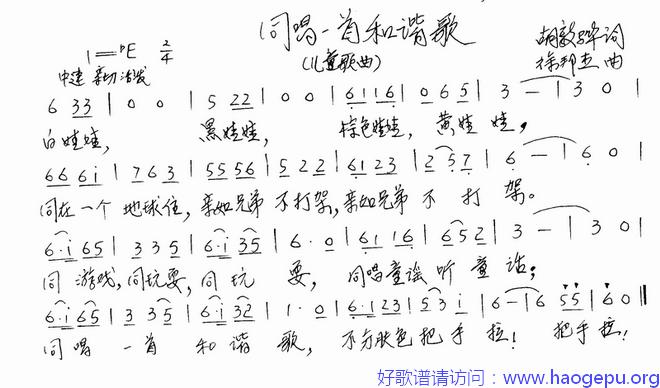 同唱一首和谐歌
1=bE 2/4
(儿童歌曲)
胡敦骅 词
中速 亲切 活泼
徐邦杰 曲
6 33 | 0 0 | 5 22 | 0 0 | 6116 | 0 6 5 | 3 — | 3 0 |
白娃娃, 黑娃娃, 棕色娃娃, 黄娃娃,
66 6i | 7 6 3 | 55 56 | 5 2 2 | 61 23 | 2 57 | 6 — | 6 0 |
同在一个地球住, 亲如兄弟不打架, 亲如兄弟不打架。
6·i 65 | 3 3 5 | 6·i 35 | 6·0 | 61 16 | 65 2 | 3 — | 3 0 |
同游戏, 同玩耍, 同玩耍, 同唱童谣听童话;
6·i 65 | 3 35 | 6·i 32 | 1·0 | 6·123 | 53 i | 6 — | 6 55 | 6 0 ‖
同唱一首和谐歌, 不分肤色把手拉! 把手拉!
好歌谱请访问:www.haogepu.org